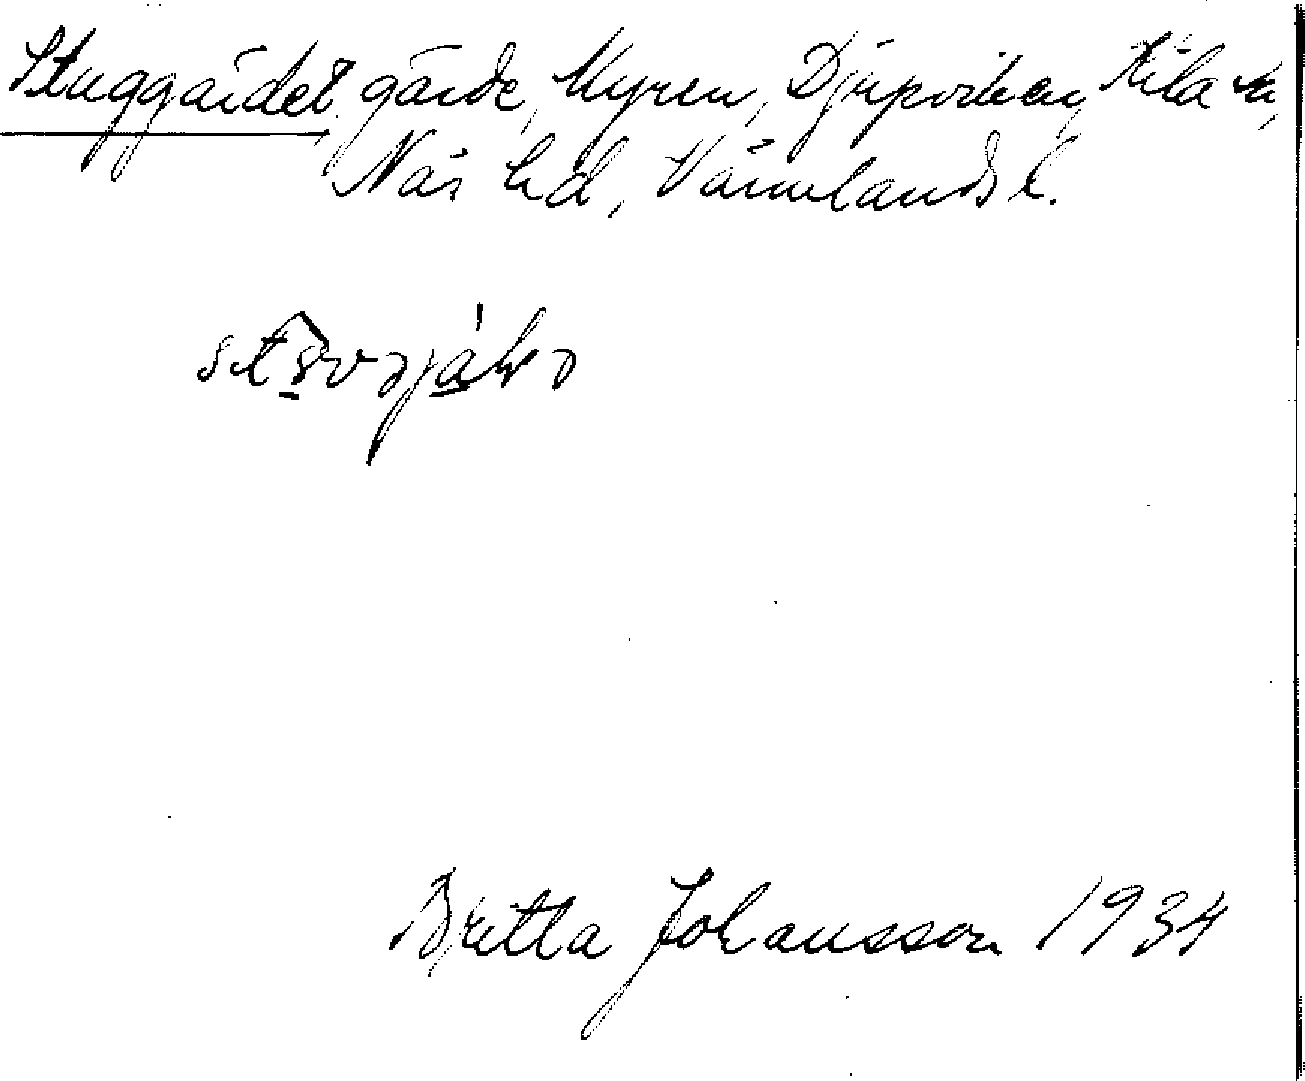 Stuggärdet, gärde, Myren, Djupviken, Kila sn,
Näs hd, Värmlands l.
Britta Johansson 1934